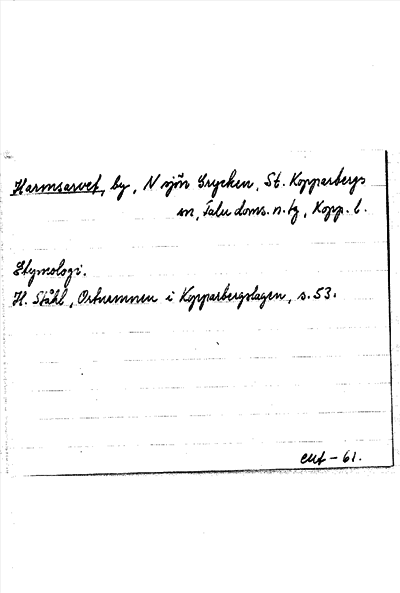 Harmsarvet, by, N sjön Grycken, St. Kopparbergs
sn, Falu doms. n. tg, Kopp. l.
Etymologi.
H. Ståhl, Ortnamnen i Kopparbergslagen, s. 53.
61.